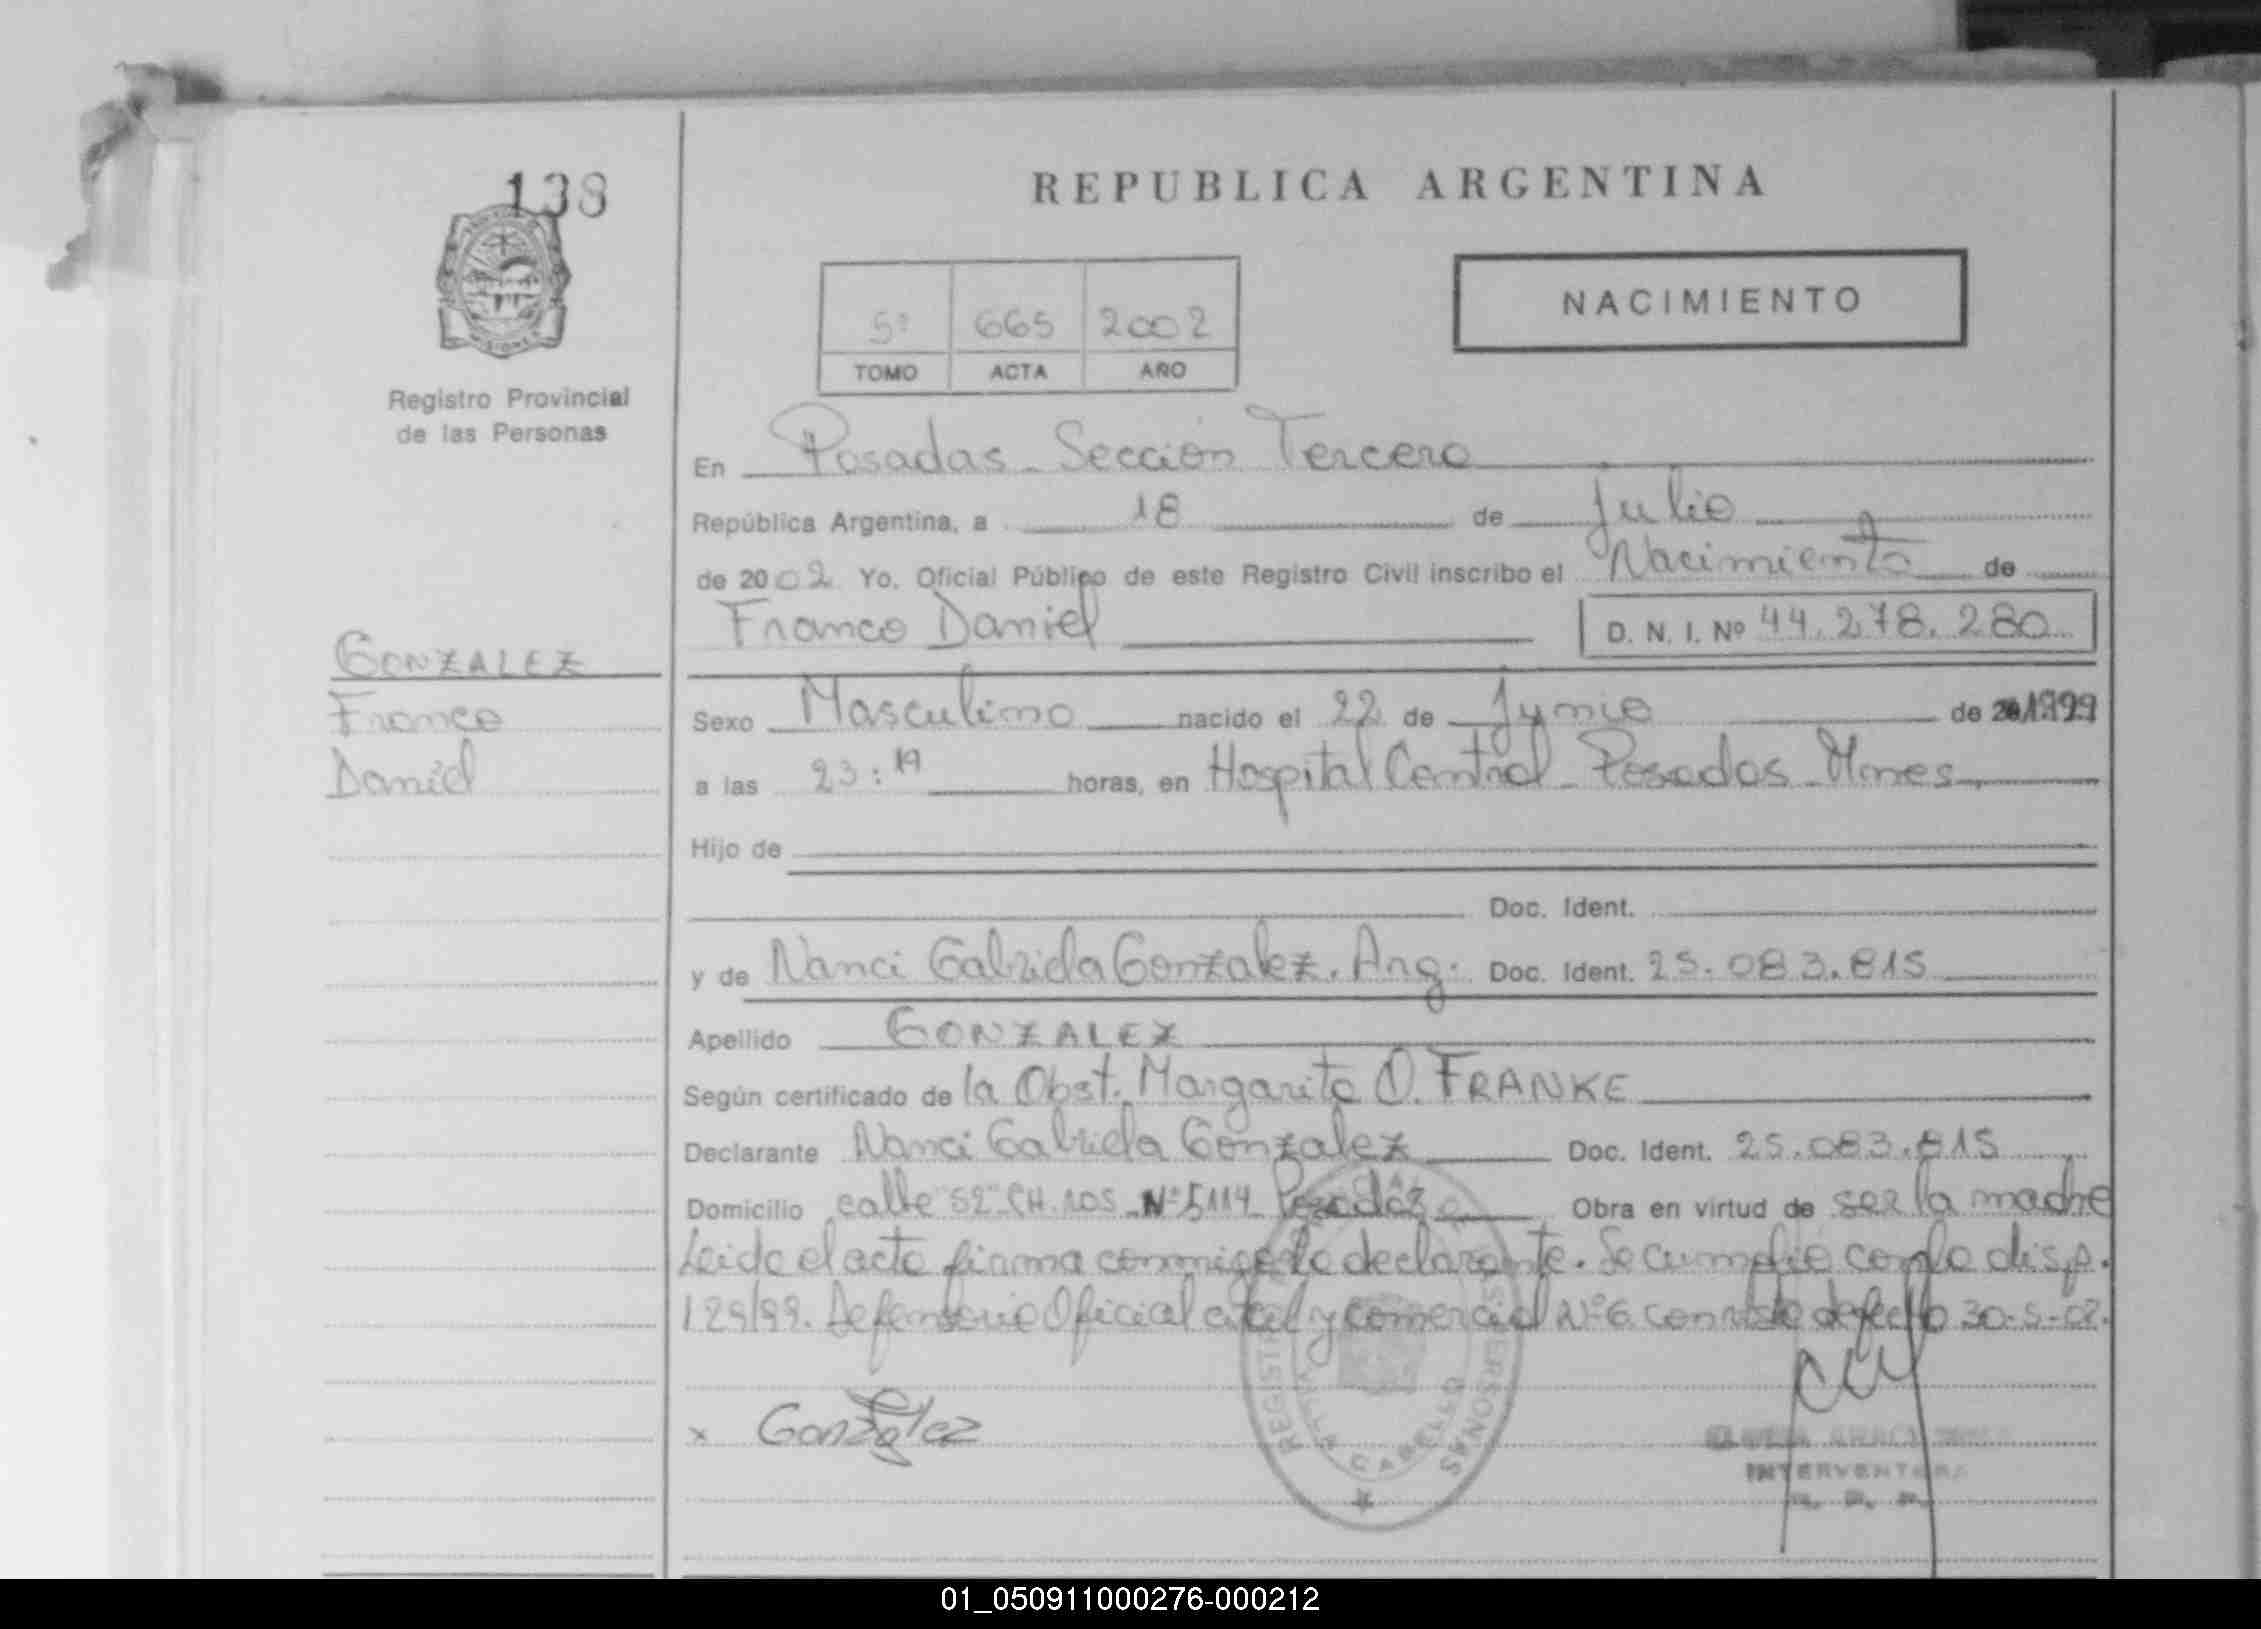 138
REPUBLICA ARGENTINA
NACIMIENTO
5º 665 2002
TOMO ACTA AÑO
Registro Provincial
de las Personas
En Posadas - Sección Tercera
República Argentina, a 18 de Julio
de 2002 Yo, Oficial Público de este Registro Civil inscribo el Nacimiento de
Franco Daniel D. N. I. Nº 44.278.280
GONZALEZ
Franco
Daniel
Sexo Masculino nacido el 22 de Junio de 1999
a las 23:19 horas, en Hospital Central - Posadas - Mnes
Hijo de
Doc. Ident.
y de Nanci Gabriela Gonzalez. Arg. Doc. Ident. 25.083.815
Apellido GONZALEZ
Según certificado de la Obst. Margarita O. FRANKE
Declarante Nanci Gabriela Gonzalez Doc. Ident. 25.083.815
Domicilio calle 52 CH. 105 Nº 5114 Posadas Obra en virtud de ser la madre
Leida el acta firma conmigo la declarante. Se cumplió con la disp.
129/99. Defensoria Oficial civil y comercial Nº 6 con fecha 30-5-02.
x Gonzalez
CABELLO
INTERVENTORA
01_050911000276-000212